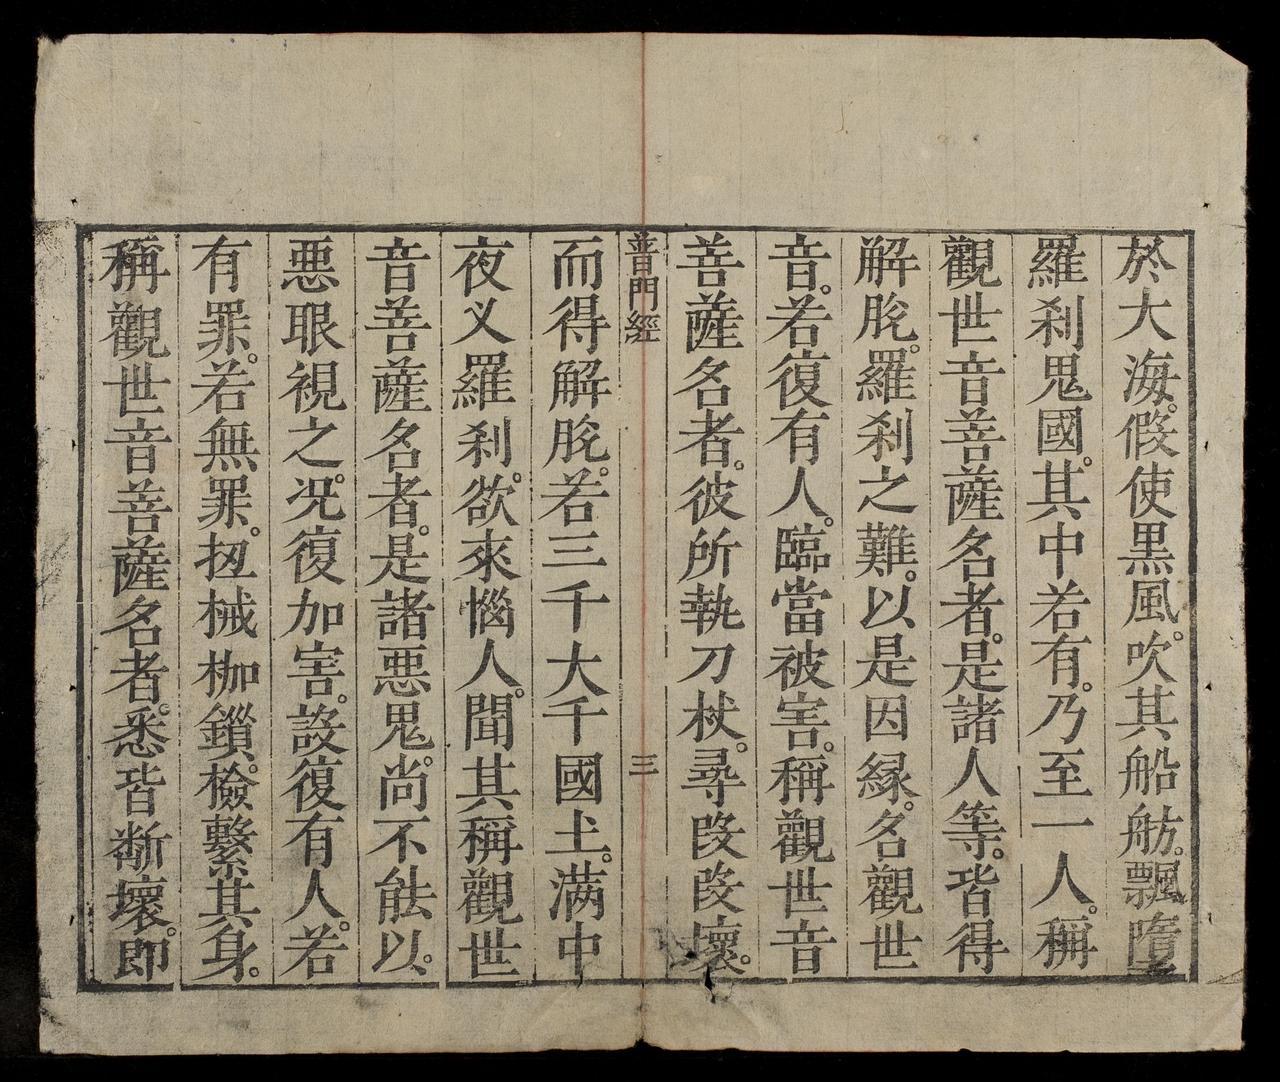 於大海。假使黑風。吹其船舫。飄墮
羅刹鬼國。其中若有。乃至一人。稱
觀世音菩薩名者。是諸人等。皆得
解脫。羅刹之難。以是因緣。名觀世
音。若復有人。臨當被害。稱觀世音
菩薩名者。彼所執刀杖。尋段段壞。
普門經 三
而得解脫。若三千大千國土。滿中
夜叉羅刹。欲來惱人。聞其稱觀世
音菩薩名者。是諸惡鬼。尚不能以。
惡眼視之。況復加害。設復有人。若
有罪。若無罪。扭械枷鎖。檢繫其身。
稱觀世音菩薩名者。悉皆斷壞。即